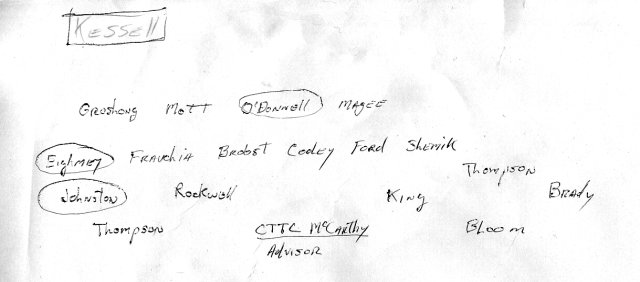 Kessell
Grushong Mott O'Donnell Magee
Eighmey Frauchia Brobst Cooley Ford Sherrik
Thompson
Johnston Rockwell King Brady
Thompson CTTC McCarthy Bloom
Advisor